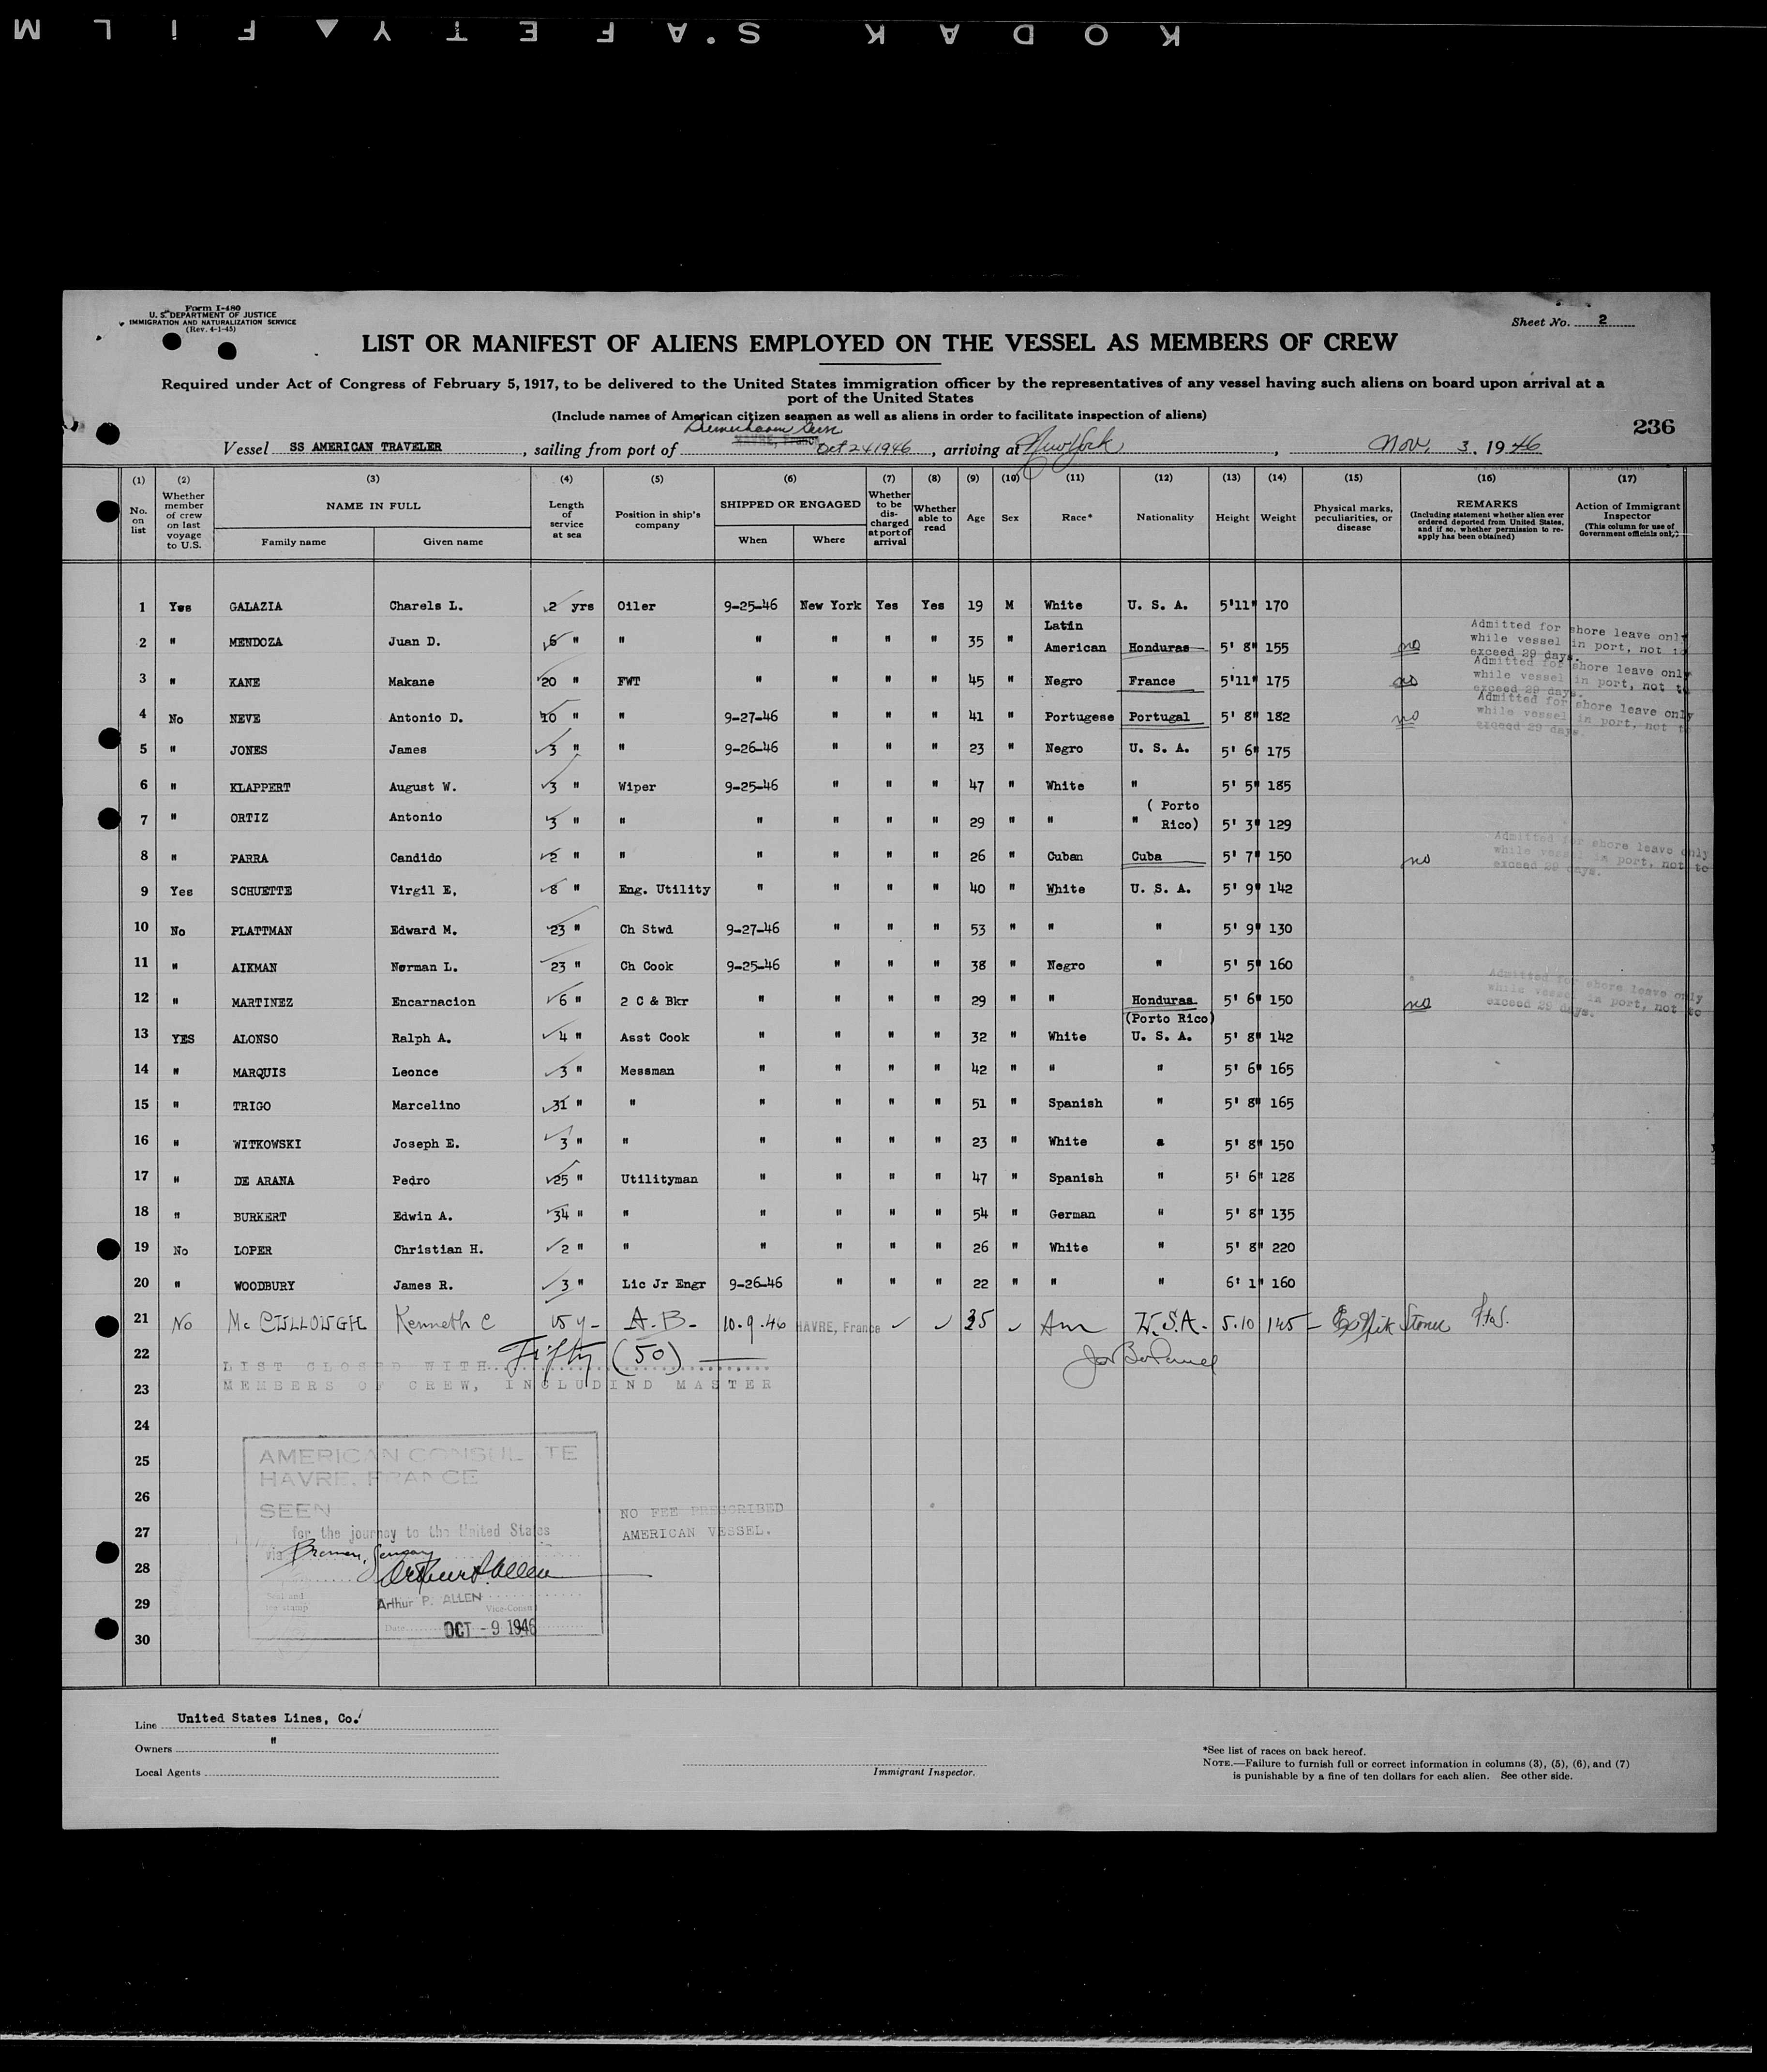 KODAK S·AFETY▲FILM
Form I-480
U. S. DEPARTMENT OF JUSTICE
IMMIGRATION AND NATURALIZATION SERVICE
(Rev. 4-1-45)
Sheet No. 2
LIST OR MANIFEST OF ALIENS EMPLOYED ON THE VESSEL AS MEMBERS OF CREW
Required under Act of Congress of February 5, 1917, to be delivered to the United States immigration officer by the representatives of any vessel having such aliens on board upon arrival at a
port of the United States
(Include names of American citizen seamen as well as aliens in order to facilitate inspection of aliens)
236
Vessel SS AMERICAN TRAVELER, sailing from port of HAVRE, France Oct 24 1946, arriving at New York, Nov. 3. 1946
(1) (2) (3) (4) (5) (6) (7) (8) (9) (10) (11) (12) (13) (14) (15) (16) (17)
No. on list
Whether member of crew on last voyage to U.S.
NAME IN FULL
Family name Given name
Length of service at sea
Position in ship's company
SHIPPED OR ENGAGED
When Where
Whether to be discharged at port of arrival
Whether able to read
Age Sex Race* Nationality Height Weight
Physical marks, peculiarities, or disease
REMARKS
(Including statement whether alien ever ordered deported from United States, and if so, whether permission to re-apply has been obtained)
Action of Immigrant Inspector
(This column for use of Government officials only)
1 Yes GALAZIA Charels L. 2 yrs Oiler 9-25-46 New York Yes Yes 19 M White U. S. A. 5'11" 170
2 " MENDOZA Juan D. 6 " " " " " " 35 " Latin American Honduras 5' 8" 155 no Admitted for shore leave only while vessel in port, not to exceed 29 days.
3 " KANE Makane 20 " FWT " " " " 45 " Negro France 5'11" 175 no Admitted for shore leave only while vessel in port, not to exceed 29 days.
4 No NEVE Antonio D. 10 " " 9-27-46 " " " 41 " Portugese Portugal 5' 8" 182 no Admitted for shore leave only while vessel in port, not to exceed 29 days.
5 " JONES James 3 " " 9-26-46 " " " 23 " Negro U. S. A. 5' 6" 175
6 " KLAPPERT August W. 3 " Wiper 9-25-46 " " " 47 " White " 5' 5" 185
7 " ORTIZ Antonio 3 " " " " " " 29 " " " ( Porto Rico) 5' 3" 129
8 " PARRA Candido 2 " " " " " " 26 " Cuban Cuba 5' 7" 150 no Admitted for shore leave only while vessel in port, not to exceed 29 days.
9 Yes SCHUETTE Virgil E, 8 " Eng. Utility " " " " 40 " White U. S. A. 5' 9" 142
10 No PLATTMAN Edward M. 23 " Ch Stwd 9-27-46 " " " 53 " " " 5' 9" 130
11 " AIKMAN Norman L. 23 " Ch Cook 9-25-46 " " " 38 " Negro " 5' 5" 160
12 " MARTINEZ Encarnacion 6 " 2 C & Bkr " " " " 29 " " Honduras 5' 6" 150 no Admitted for shore leave only while vessel in port, not to exceed 29 days.
13 YES ALONSO Ralph A. 4 " Asst Cook " " " " 32 " White (Porto Rico) U. S. A. 5' 8" 142
14 " MARQUIS Leonce 3 " Messman " " " " 42 " " " 5' 6" 165
15 " TRIGO Marcelino 31 " " " " " " 51 " Spanish " 5' 8" 165
16 " WITKOWSKI Joseph E. 3 " " " " " " 23 " White " 5' 8" 150
17 " DE ARANA Pedro 25 " Utilityman " " " " 47 " Spanish " 5' 6" 128
18 " BURKERT Edwin A. 34 " " " " " " 54 " German " 5' 8" 135
19 No LOPER Christian H. 2 " " " " " " 26 " White " 5' 8" 220
20 " WOODBURY James R. 3 " Lic Jr Engr 9-26-46 " " " 22 " " " 6' 1" 160
21 No McCULLOUGH Kenneth C A.B. 10.9.46 HAVRE, France 35 Am U.S.A. 5.10 145
22 LIST CLOSED WITH Fifty (50)
23 MEMBERS OF CREW, INCLUDIND MASTER
24
25 AMERICAN CONSULATE
HAVRE, FRANCE
26 SEEN NO FEE PRESCRIBED
27 for the journey to the United States AMERICAN VESSEL.
via Bremen, Germany
28 Arthur P. Allen
29 Arthur P. ALLEN
Vice-Consul
Date OCT - 9 1946
30
Line United States Lines, Co.
Owners "
Local Agents
Immigrant Inspector.
*See list of races on back hereof.
NOTE.—Failure to furnish full or correct information in columns (3), (5), (6), and (7)
is punishable by a fine of ten dollars for each alien. See other side.